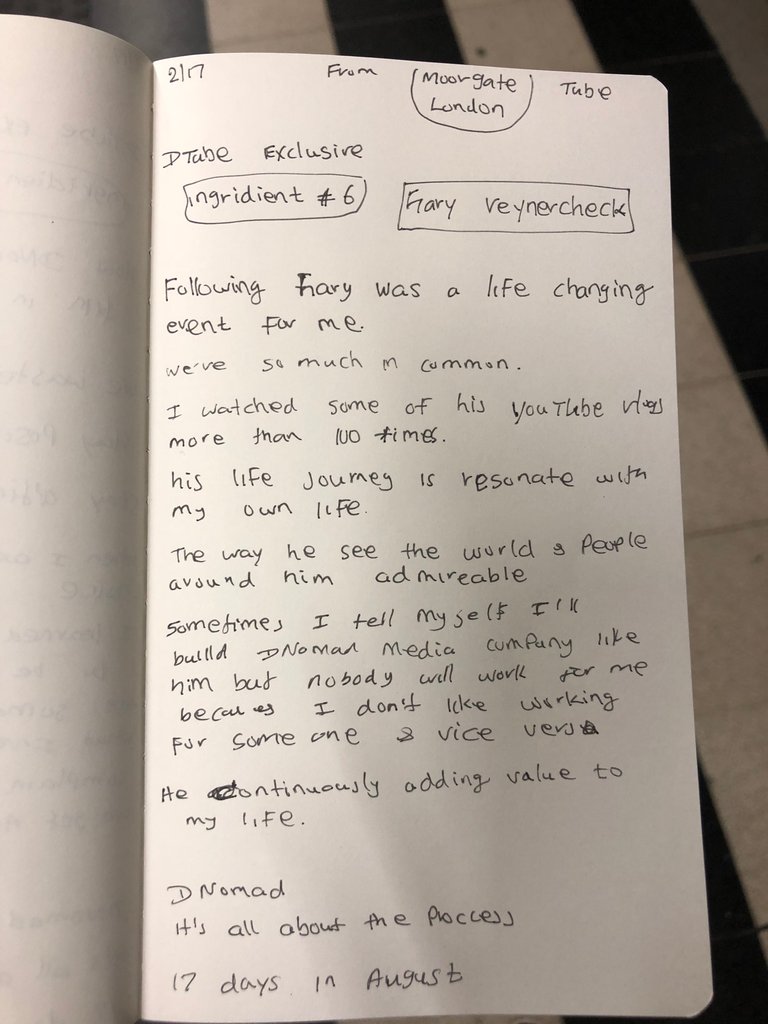 2/17 From Moorgate Tube
London
DTube Exclusive
ingridient # 6 Gary veynercheck
Following Gary was a life changing
event for me.
we've so much in common.
I watched some of his YouTube vlogs
more than 100 times.
his life Journey is resonate with
my own life.
The way he see the world & People
around him admireable
Sometimes I tell myself I'll
build DNomad Media company like
him but nobody will work for me
because I don't like working
for some one & vice versa
He continuously adding value to
my life.
DNomad
It's all about the Proccess
17 days in August